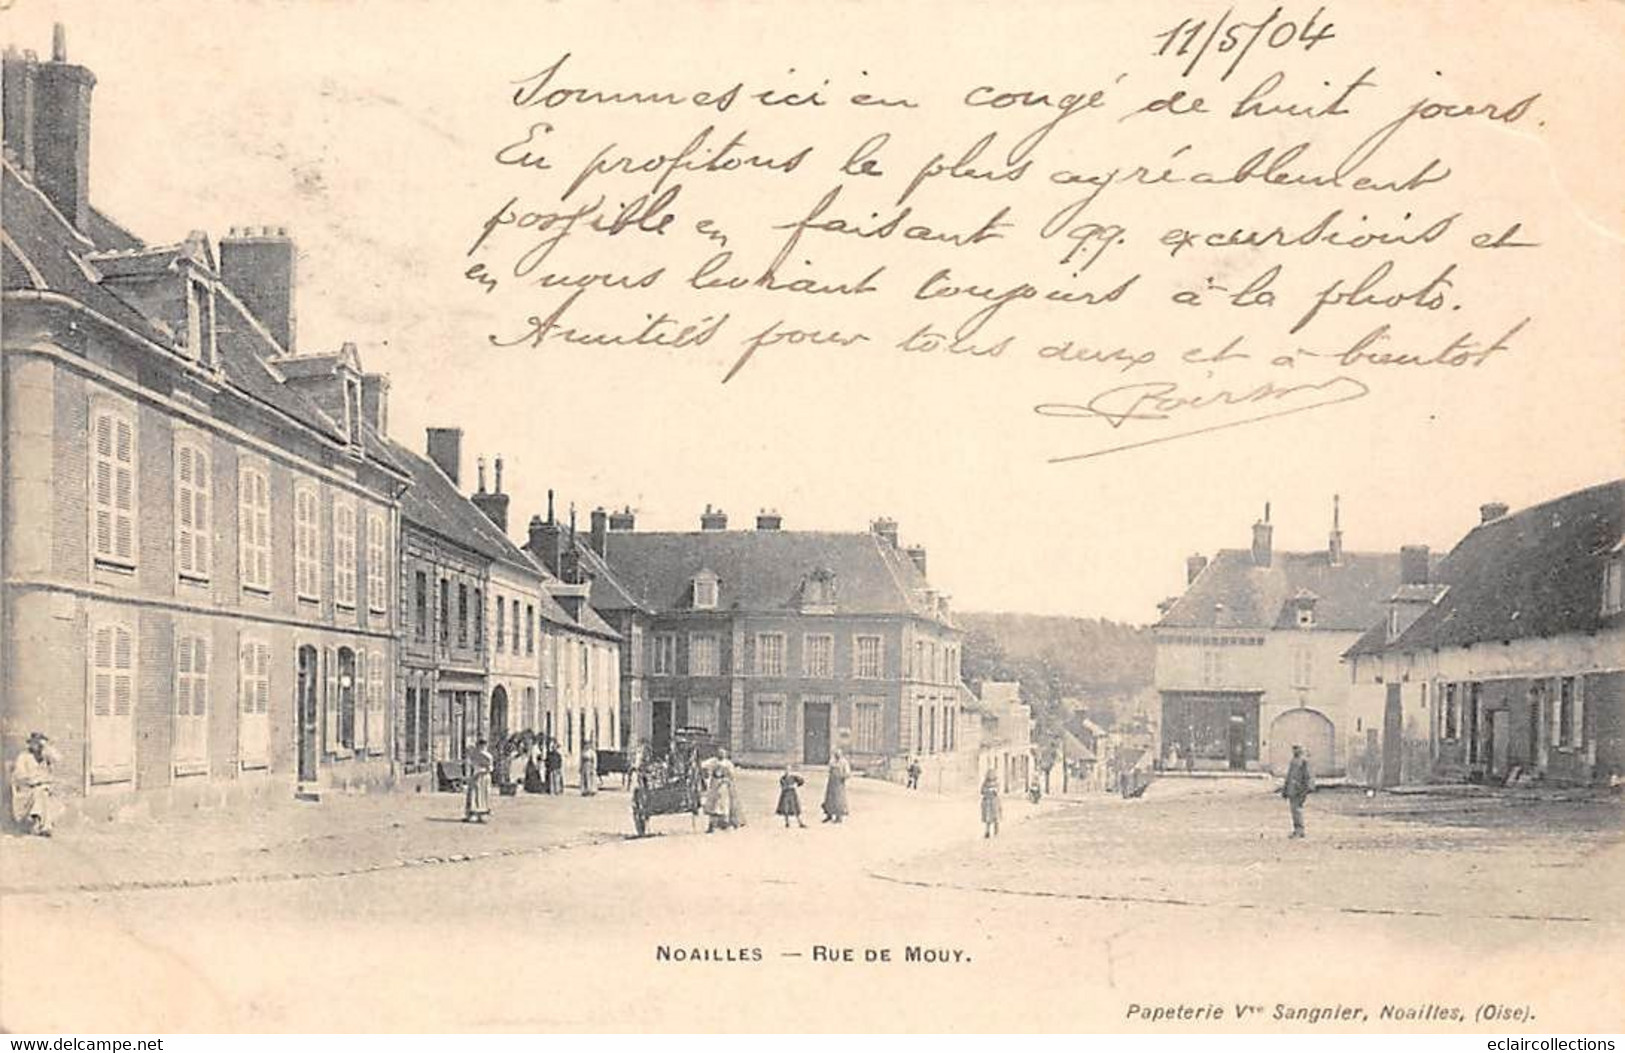 11/5/04
Sommes ici en congé de huit jours.
En profitons le plus agréablement
possible en faisant qq. excursions et
en nous livrant toujours à la photo.
Amitiés pour tous deux et à bientot
NOAILLES — RUE DE MOUY.
Papeterie Vve Sangnier, Noailles, (Oise).
delcampe.net
eclaircollections